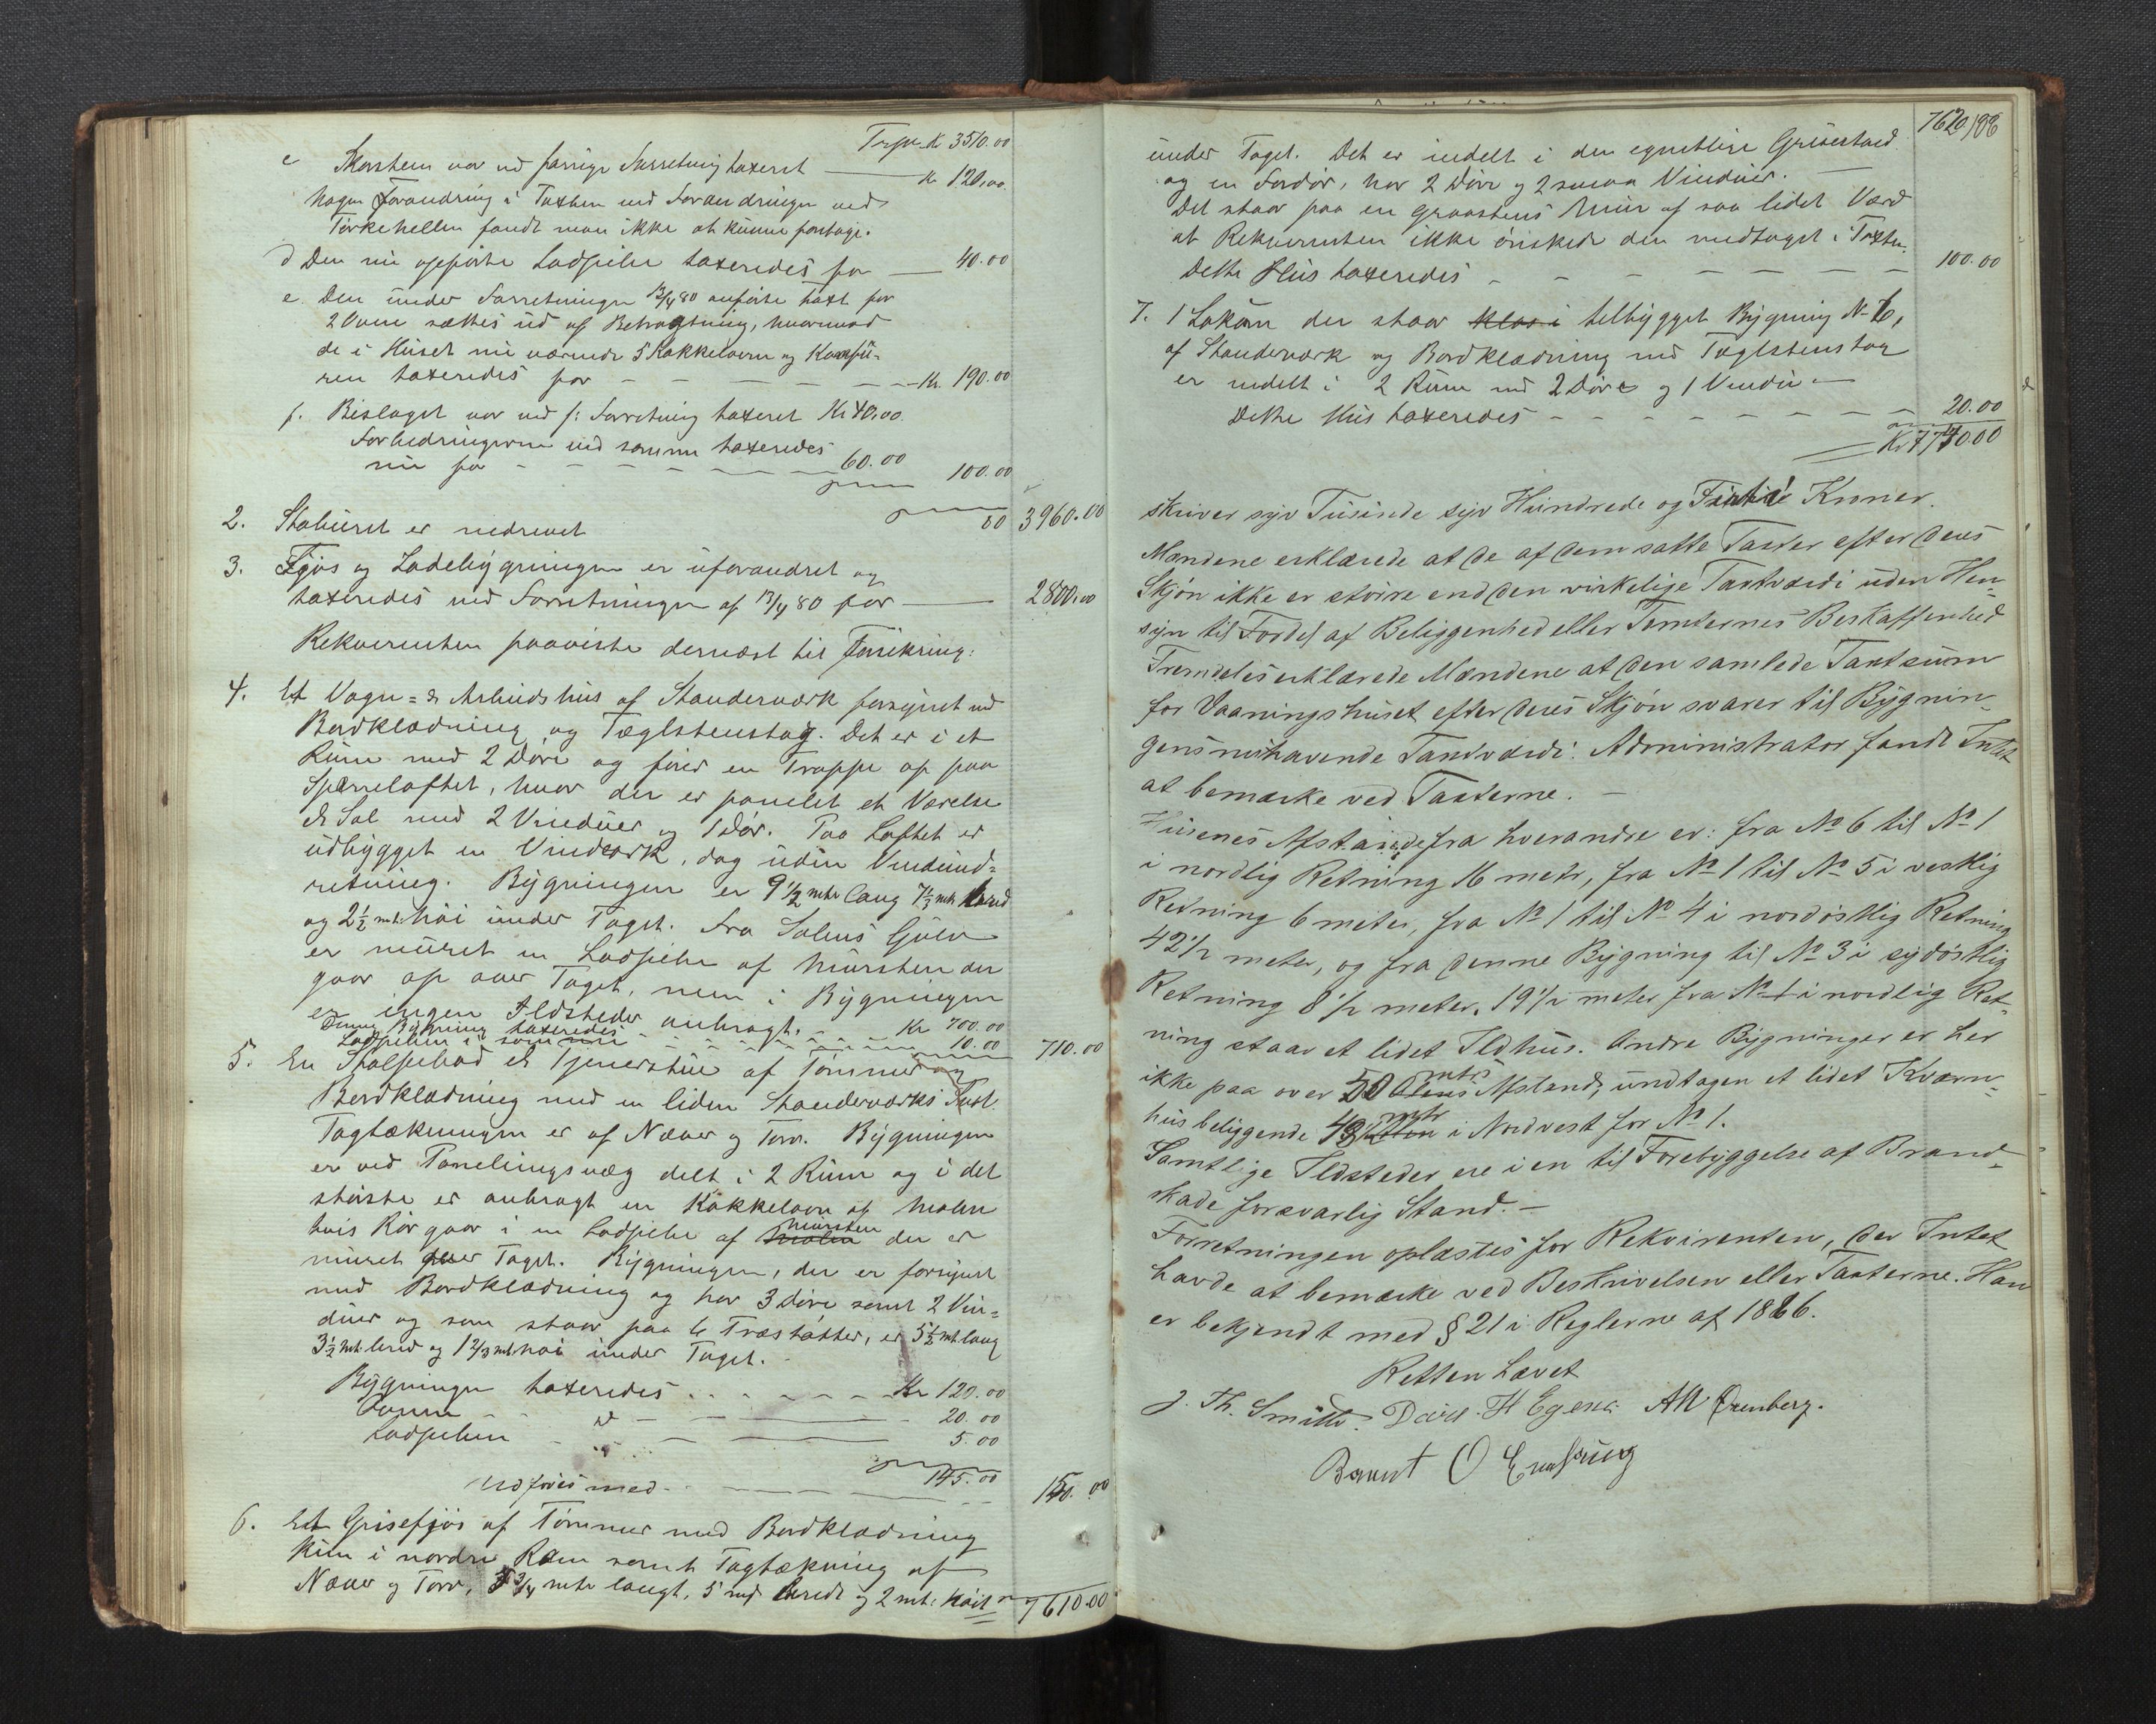 Trspr. Kr 3510.00
c Skorsten var ved forrige Forretning taxeret — Kr 120.00.
Nogen Forandring i Taxten ved Forandringen ved
Tørkehellen fandt man ikke at kunne foretage.
d Den nu opførte Ladpibe taxeredes for — 40.00
e. Den under Forretningen 13/4 80 anførte taxt for
2 Ovne sættes ud af Betragtning, hvorimod
de i Huset nu værende 5 Kakkelovne og Komfu-
ren taxeredes for - - - - - Kr. 190.00
f. Bislaget var ved f: Forretning taxeret Kr 40.00.
Forbedringerne ved samme taxeredes
nu for - - - - - 60.00 100.00
80 3960.00
2. Staburet er nedrevet
3. Fjøs og Ladebygningen er uforandret og
taxeredes ved Forretningen af 13/4 80 for — 2800.00
Rekvirenten paaviste dernæst til Forsikring:
4. Et Vogn- & Arbeidshus af Standerværk forsynet med
Bordklædning og Taglstenstag. Det er i et
Rum med 2 Døre og fører en Trappe op paa
Sperreloftet, hvor der er panelet et Værelse
& Sal med 2 Vinduer og 1 Dør. Paa Loftet er
udbygget en Vindeark, dog uden Vindeind-
retning. Bygningen er 9 1/2 mtr lang 7 1/2 mtr bred
og 2 1/2 mt: høi under Taget. Fra Salens Gulv
er muret en Ladpibe af Mursten der
gaar op over Taget, men i Bygningen
er ingen Ildsteder anbragt.
Denne Bygning taxeredes - - Kr 700.00
Ladpiben i samme - - - - 10.00 710.00
5. En Stolpebod & Tjenerstue af Tømmer og
Bordklædning med en liden Standerværks Tust.
Tagtækningen er af Næver og Torv. Bygningen
er ved Panelingsvæg delt i 2 Rum og i det
største er anbragt en Kakkelovn af Malm
hvis Rør gaar i en Ladpibe af Malm Mursten der er
muret over Taget. Bygningen, der er forsynet
med Bordklædning og har 3 Døre samt 2 Vin-
duer og som staar paa 6 Træstøtter, er 5 1/2 mt lang
3 1/2 mt. bred og 1 2/3 mt høi under Taget.
Bygningen taxeredes - - - - Kr 120.00
Ovnen - - - 20.00
Ladpiben - - - 5.00
145.00
Udføres med - - - - 150.00
6. Et Grisefjøs af Tømmer med Bordklædning
kun i nordre Ram samt Tagtækning af
Næver og Torv, 5 3/4 mtr langt, 5 mtr bredt og 2 mt: høit
7610.00
7620/88
under Taget. Det er indelt i den egentlige Grisestand
og en Fordør, har 2 Døre og 2 smaa Vinduer. —
Det staar paa en Graastens Mur af saa lidet Værd
at Rekvirenten ikke ønskede den medtaget i Taxten.
Dette Hus taxeredes - - - - - - 100.00
7. 1 Lokum der staar klos i tilbygget Bygning No 6,
af Standerværk og Bordklædning med Taglstenstag
er indelt i 2 Rum med 2 Døre og 1 Vindu —
Dette Hus taxeredes - - - - - - 20.00
Kr 7740.00
skriver syv Tusinde syv Hundrede og Firti Kroner.
Mændene erklærede at de af dem satte Taxter efter deres
Skjøn ikke er større end den virkelige Taxtværdi uden Hen-
syn til Fordel af Beliggenhed eller Tomternes Beskaffenhed
Fremdeles erklærede Mændene at den samlede Taxtsum
for Vaaningshuset efter deres Skjøn svarer til Bygnin-
gens nuhavende Taxtværdi. Administrator fandt Intet
at bemærke ved Taxterne. —
Husenes Afstande fra hverandre er: fra No 6 til No 1
i nordlig Retning 16 metr, fra No 1 til No 5 i vestlig
Retning 6 meter, fra No 1 til No 4 i nordøstlig Retning
42 1/2 meter, og fra denne Bygning til No 3 i sydøstlig
Retning 8 1/2 meter. 19 1/2 meter fra No 1 i nordlig Ret-
ning staar et lidet Ildhus. Andre Bygninger er her
ikke paa over 50 mtrs Afstand, undtagen et lidet Kværn-
hus beliggende 48 mtr i Nordvest for No 1.
Samtlige Ildsteder ere i en til Forebyggelse af Brand-
skade forsvarlig Stand. —
Forretningen oplæstes for Rekvirenten, der Intet
havde at bemærke ved Beskrivelsen eller Taxterne. Han
er bekjendt med § 21 i Reglerne af 1886.
Retten hævet
J. Th. Smith. David H Egenæs AN Orenberg.
Bernt O